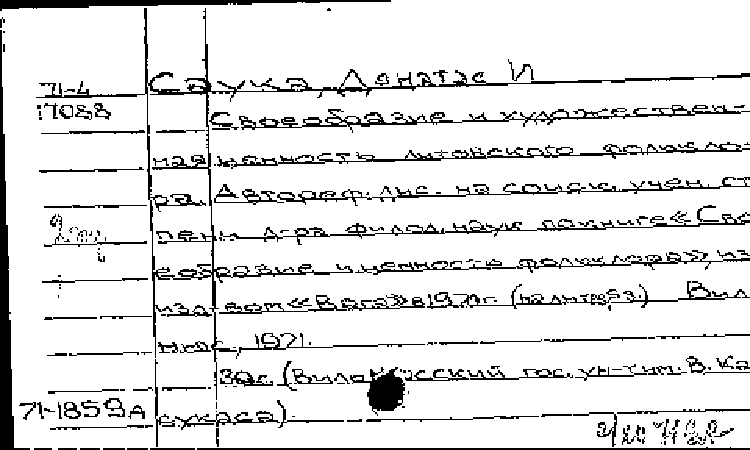 71-4 Саука, Донатас И
17088 Своеобразие и художествен-
ная ценность литовского фолькло-
ра. Автореф. дис. на соиск. учен. ст
пени д-ра филол. наук по книге «Сво
еобразие и ценность фольклора», из
изд-вом «Вага» в 1970 г. (на лит. яз.) Вил
нюс, 1971.
32 с. (Вильнюсский гос. ун-т им. В. Ка
71-1859А сукаса).